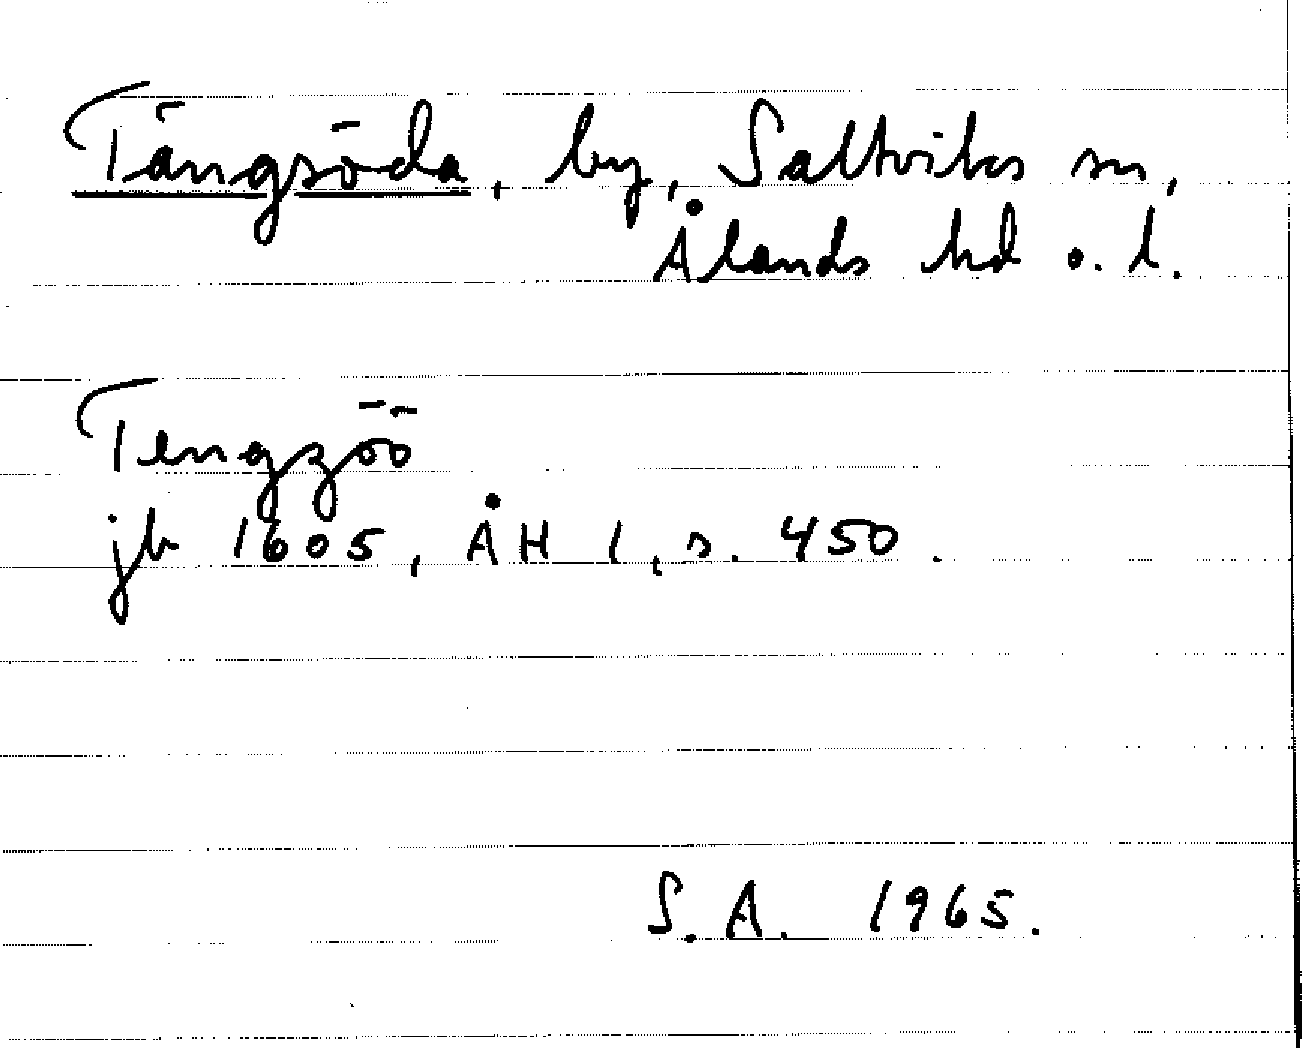 Tängsöda, by, Saltviks sn,
Ålands hd o. l.
Tengzöö
jb 1605, ÅH 1, s. 450.
S. A. 1965.